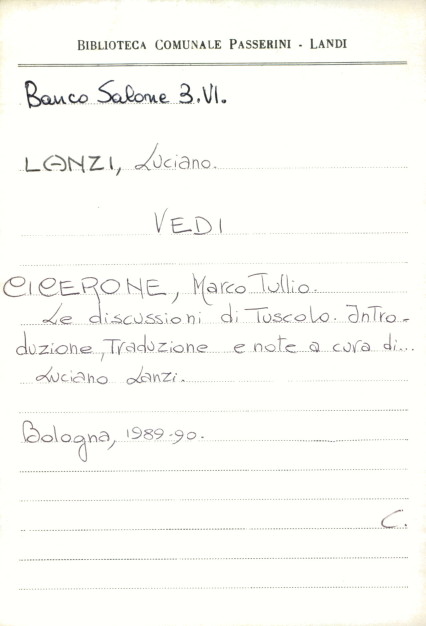 BIBLIOTECA COMUNALE PASSERINI - LANDI
Banco Salone 3.VI.
LANZI, Luciano.
VEDI
CICERONE, Marco Tullio.
Le discussioni di Tuscolo. Intro-
duzione, Traduzione e note a cura di...
Luciano Lanzi.
Bologna, 1989-90.
C.